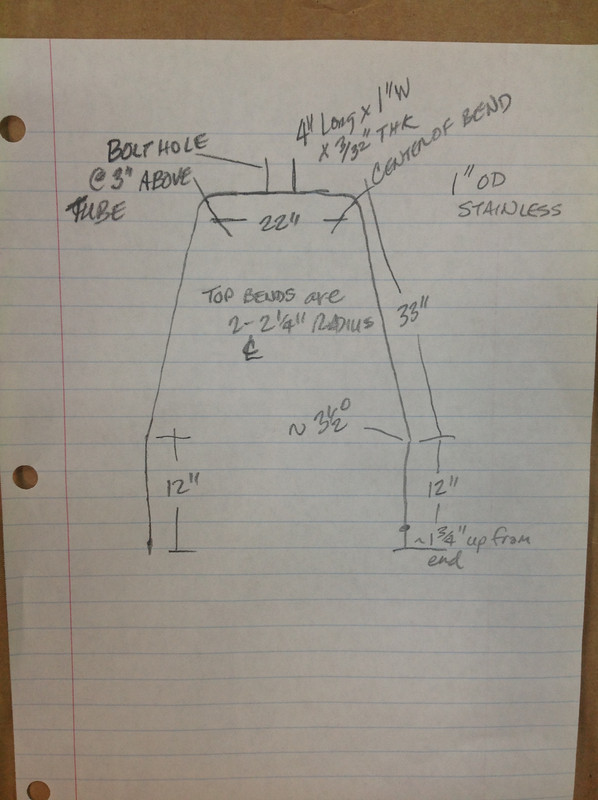 4" Long x 1" W
x 3/32" THK
BOLT HOLE
@ 3" ABOVE
TUBE
CENTER OF BEND
1" OD
STAINLESS
22"
TOP BENDS are
2-2 1/4" RADIUS
℄
33"
~ 3½°
12"
12"
~1 3/4" up from
end